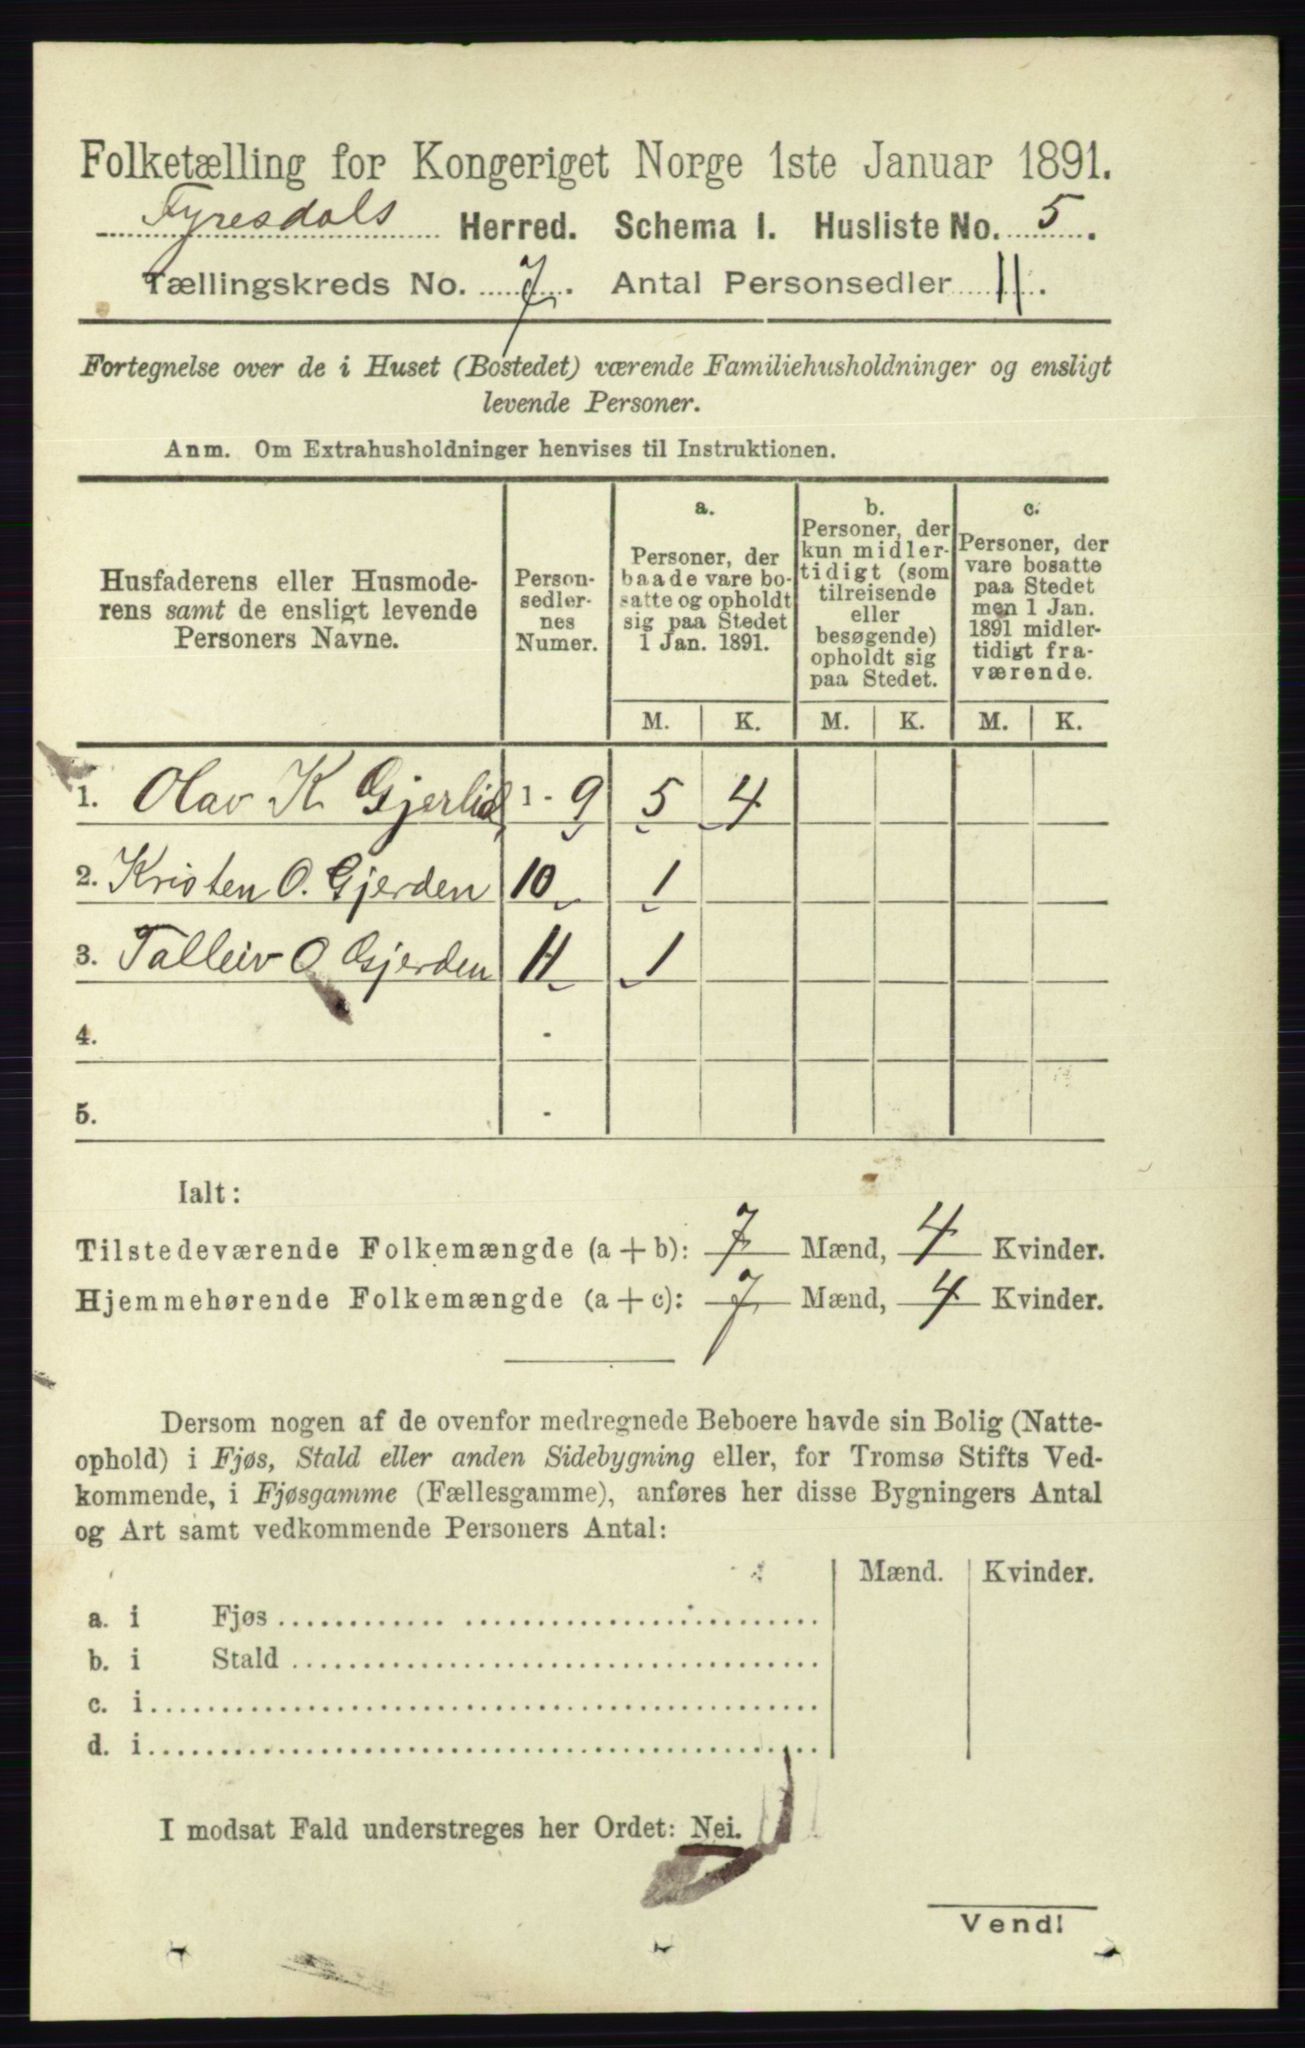 Folketælling for Kongeriget Norge 1ste Januar 1891.
Fyresdals Herred. Schema I. Husliste No. 5.
Tællingskreds No. 7. Antal Personsedler 11.
Fortegnelse over de i Huset (Bostedet) værende Familiehusholdninger og ensligt
levende Personer.
Anm. Om Extrahusholdninger henvises til Instruktionen.
Husfaderens eller Husmode-
rens samt de ensligt levende
Personers Navne.
Person-
sedler-
nes
Numer.
a.
Personer, der
baade vare bo-
satte og opholdt
sig paa Stedet
1 Jan. 1891.
b.
Personer, der
kun midler-
tidigt (som
tilreisende
eller
besøgende)
opholdt sig
paa Stedet.
c.
Personer, der
vare bosatte
paa Stedet
men 1 Jan.
1891 midler-
tidigt fra-
værende.
M. K. M. K. M. K.
1. Olav K Gjerlid 1 - 9 5 4
2. Kristen O. Gjerden 10 1
3. Talleiv O Gjerden 11 1
4. -
5. -
Ialt:
Tilstedeværende Folkemængde (a + b): 7 Mænd, 4 Kvinder.
Hjemmehørende Folkemængde (a + c): 7 Mænd, 4 Kvinder.
Dersom nogen af de ovenfor medregnede Beboere havde sin Bolig (Natte-
ophold) i Fjøs, Stald eller anden Sidebygning eller, for Tromsø Stifts Ved-
kommende, i Fjøsgamme (Fællesgamme), anføres her disse Bygningers Antal
og Art samt vedkommende Personers Antal:
Mænd. Kvinder.
a. i Fjøs
b. i Stald
c. i
d. i
I modsat Fald understreges her Ordet: Nei.
Vend!